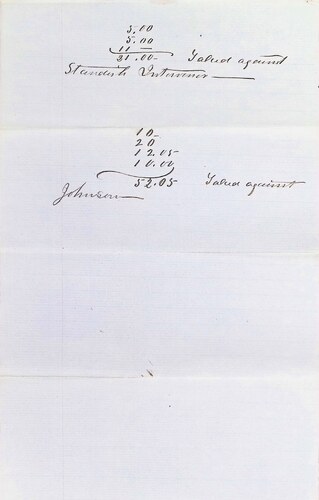 5.00
5.00
11 —
21.00 Taxed against
Standish Intervenor
10 —
20
12 05
10.00
52.05 Taxed against
Johnson